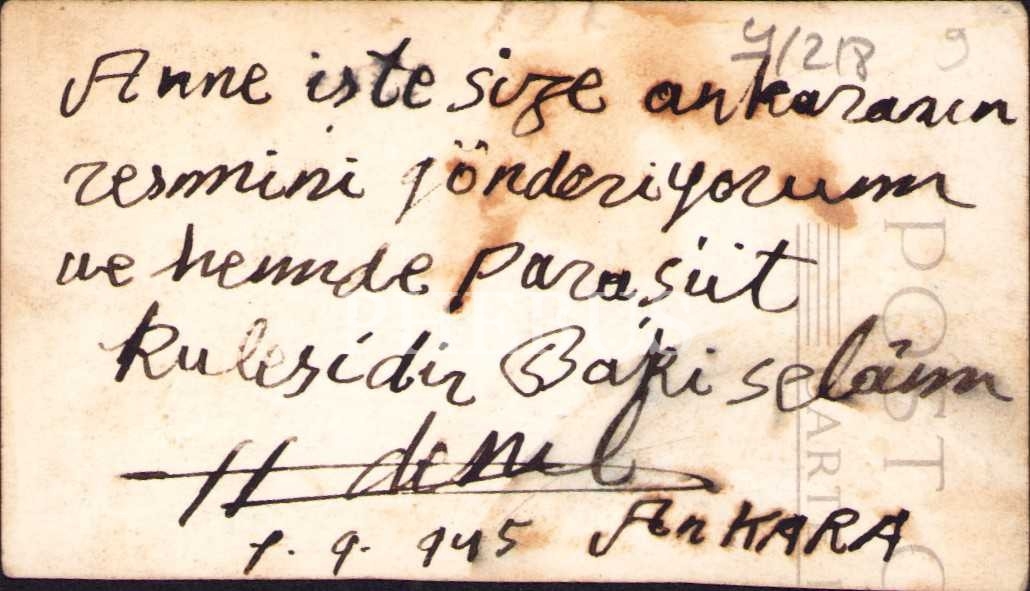 4/218 9
Anne iste size ankaranın
resmini gönderiyorum
ve hemde paraşüt
kulesidir Bâki selâm
H
1.9.945 AnKARA
POST CARD